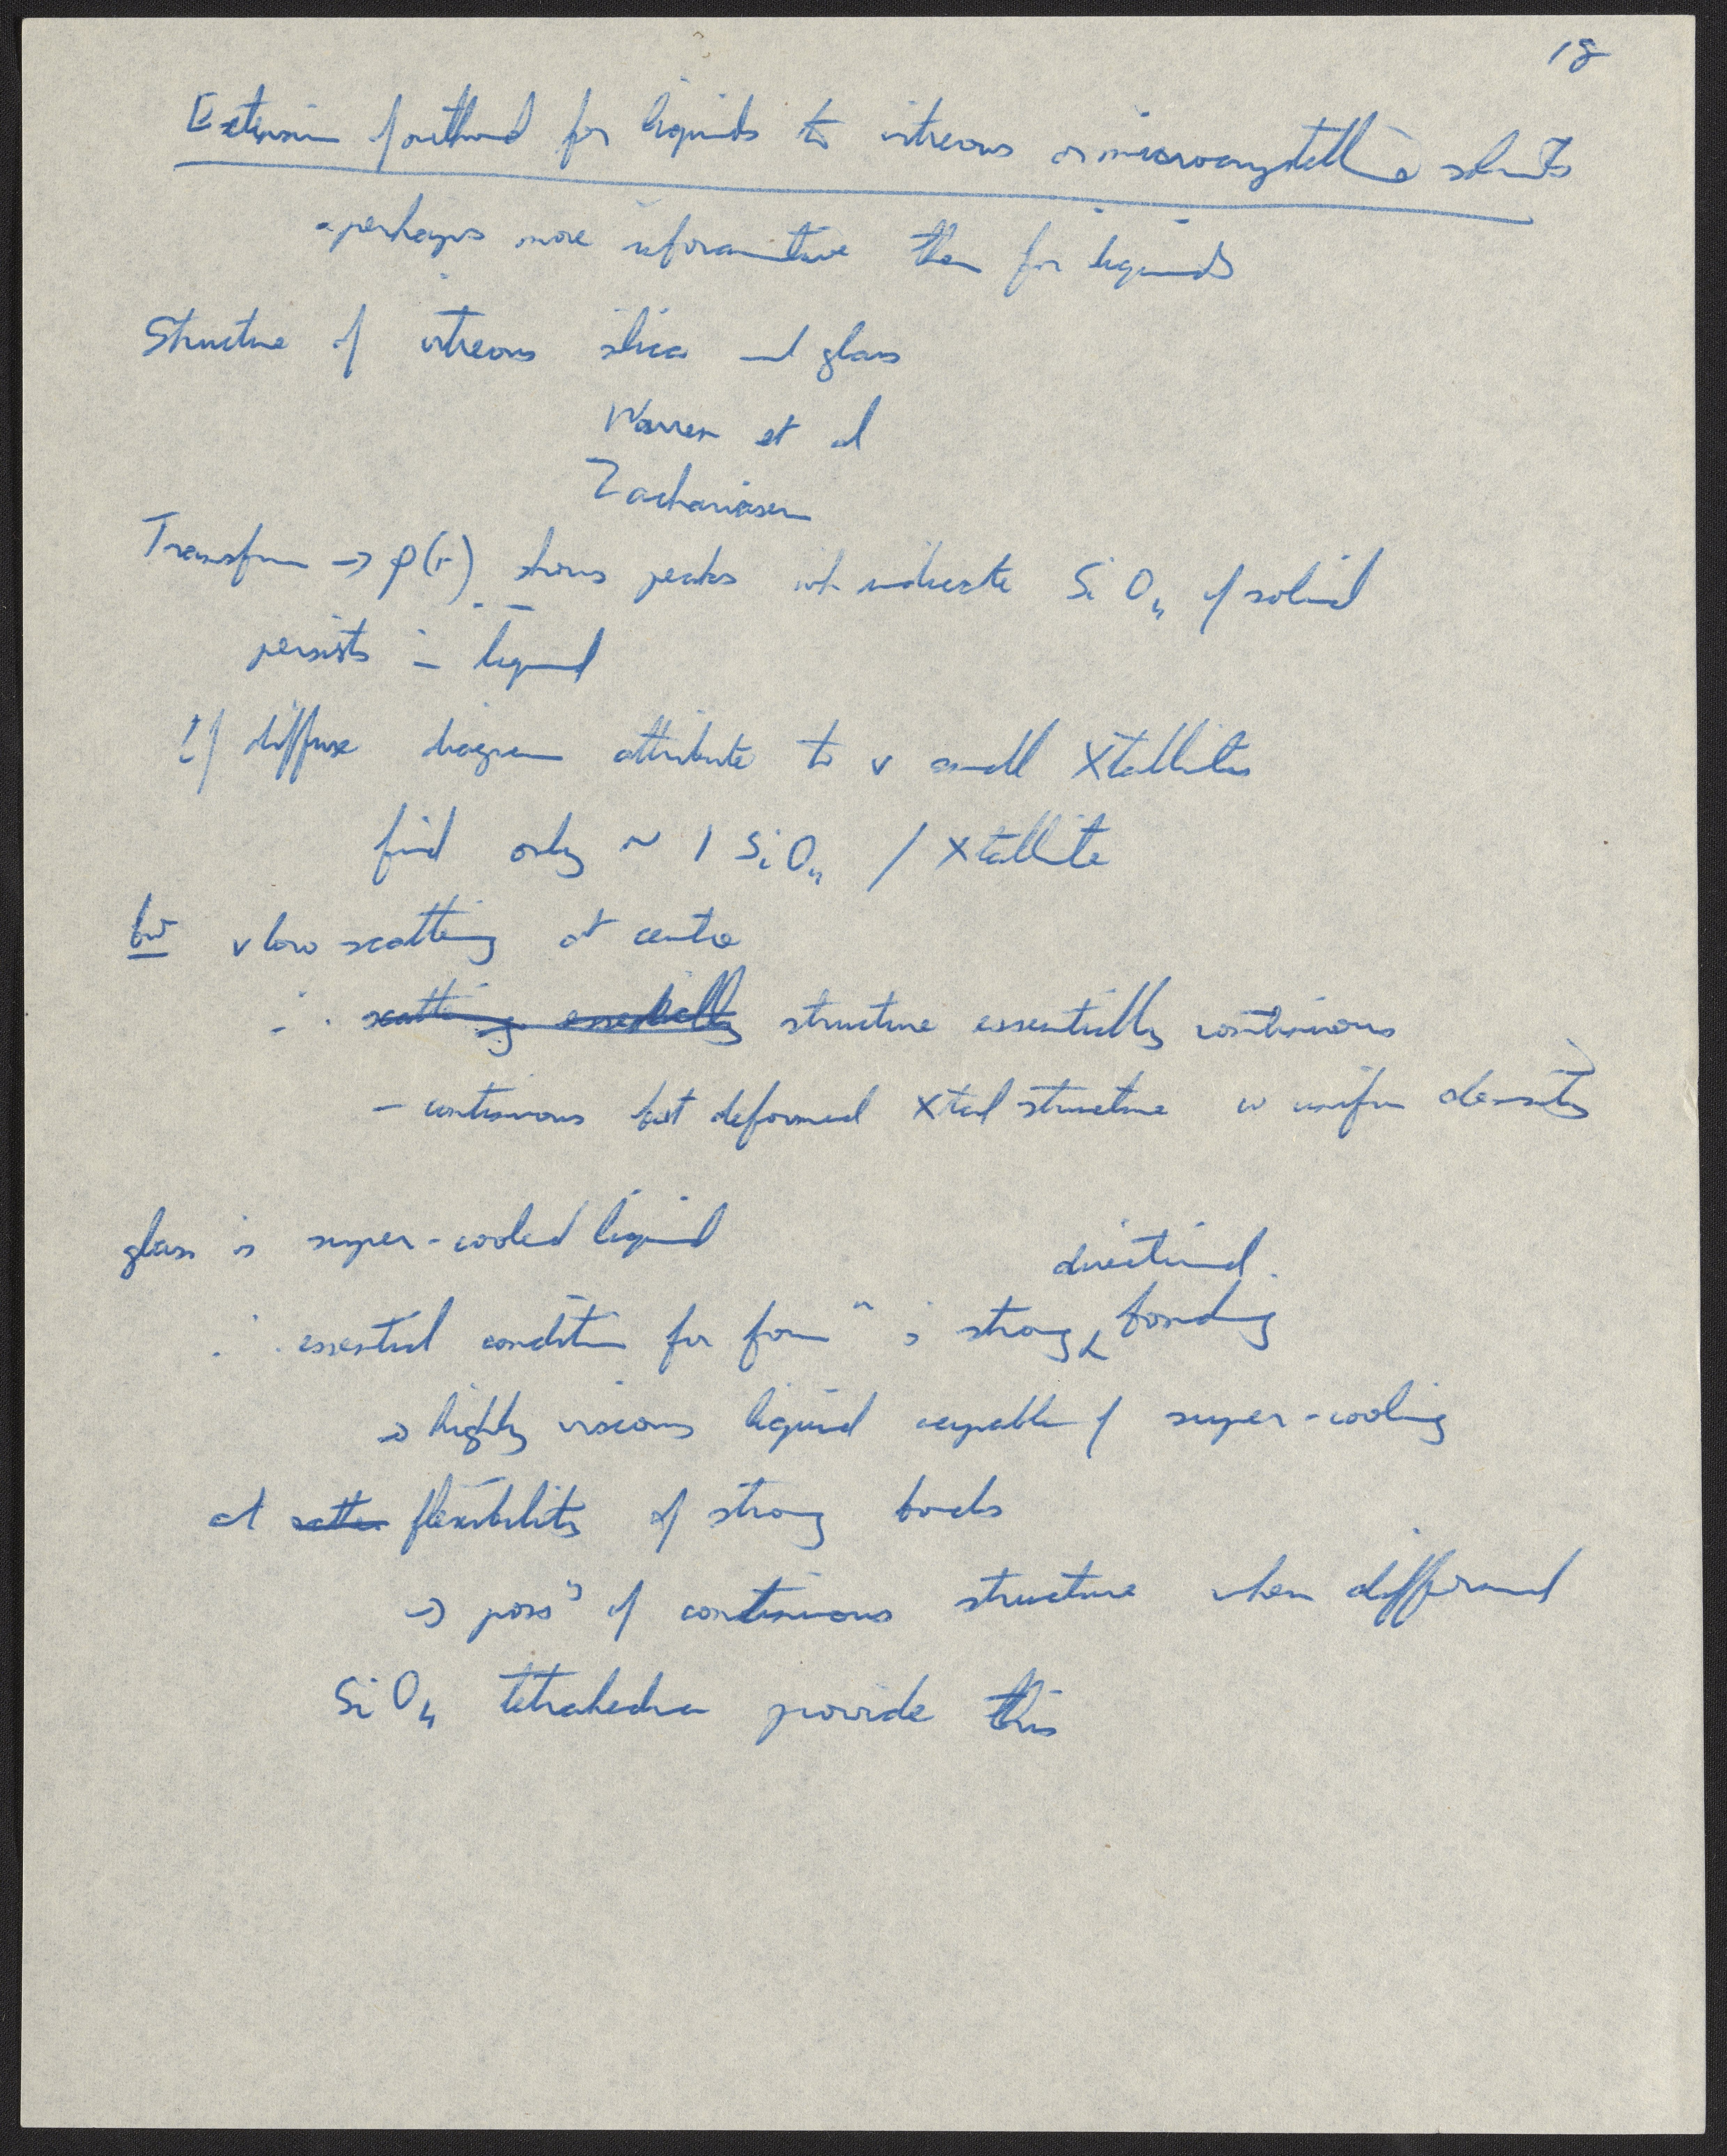 18
Extension of method for liquids to vitreous or microcrystalline solids
- perhaps more informative than for liquids
Structure of vitreous silica and glass
Warren et al
Zachariasen
Transform → ρ(r) shows peaks wh indicate SiO4 of solid
persists in liquid
If diffuse diagram attribute to v small Xtallites
find only ~ 1 SiO4 / Xtallite
but v low scattering at centre
∴ scattering essentially structure essentially continuous
- continuous but deformed Xtal structure w uniform density
glass is super-cooled liquid
∴ essential condition for formn is strong directional bonding
→ highly viscous liquid capable of super-cooling
and flexibility of strong bonds
→ possy of continuous structure when
SiO4 tetrahedra provide this